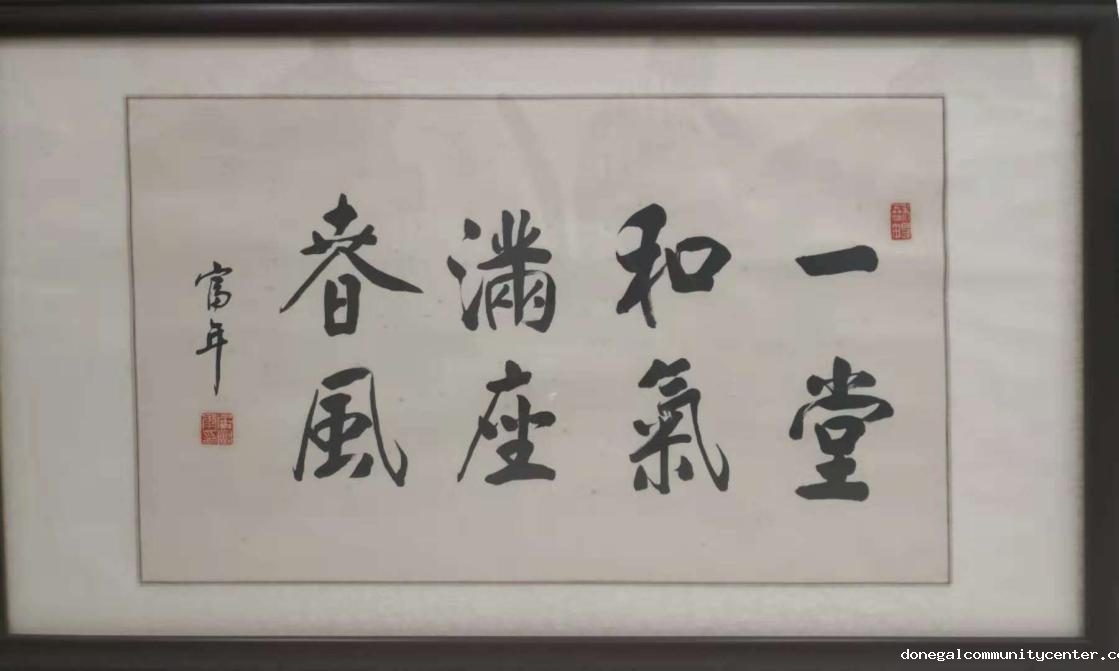 一堂
和氣
滿座
春風
富年
donegalcommunitycenter.c